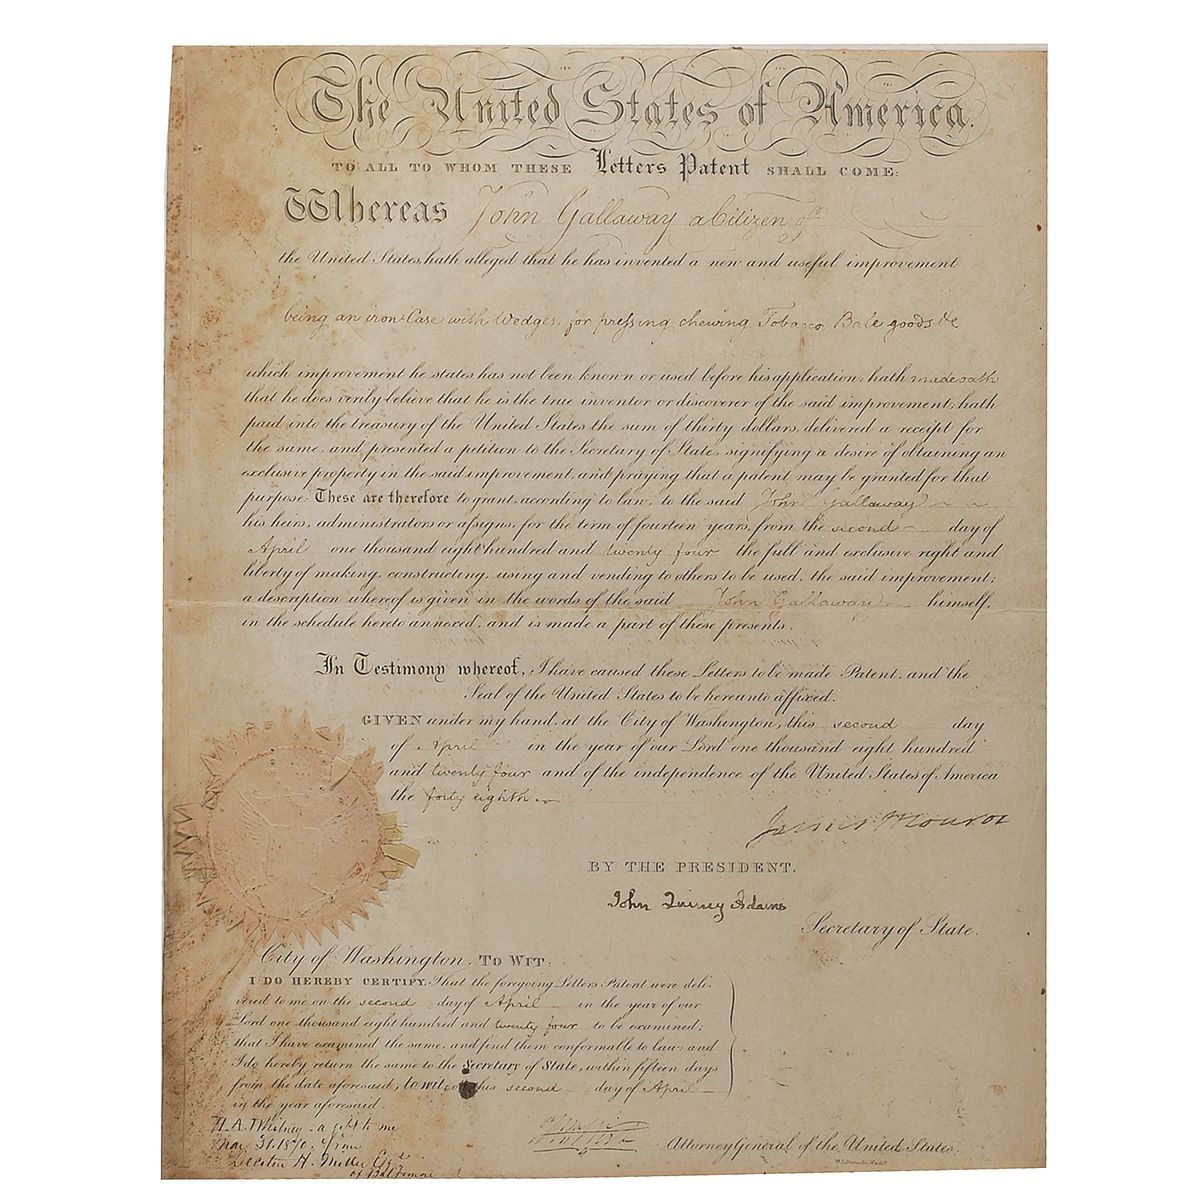 The United States of America.
TO ALL TO WHOM THESE Letters Patent SHALL COME:
Whereas John Gallaway a Citizen of
the United States, hath alleged that he has invented a new and useful improvement
being an iron Case with Wedges, for pressing chewing Tobacco, Bale goods &c
which improvement he states has not been known or used before his application; hath made oath
that he does verily believe that he is the true inventor or discoverer of the said improvement; hath
paid into the treasury of the United States the sum of thirty dollars, delivered a receipt for
the same, and presented a petition to the Secretary of State, signifying a desire of obtaining an
exclusive property in the said improvement, and praying that a patent may be granted for that
purpose: These are therefore to grant, according to law, to the said John Gallaway
his heirs, administrators or assigns, for the term of fourteen years, from the second day of
April one thousand eight hundred and twenty four the full and exclusive right and
liberty of making, constructing, using and vending to others to be used, the said improvement;
a description whereof is given in the words of the said John Gallaway himself,
in the schedule hereto annexed, and is made a part of these presents.
In Testimony whereof, I have caused these Letters to be made Patent, and the
Seal of the United States to be hereunto affixed.
GIVEN under my hand, at the City of Washington, this second day
of April in the year of our Lord one thousand eight hundred
and twenty four and of the independence of the United States of America
the forty eighth
James Monroe
BY THE PRESIDENT.
John Quincy Adams
Secretary of State.
City of Washington, TO WIT:
I DO HEREBY CERTIFY, That the foregoing Letters Patent were deli-
vered to me on the second day of April in the year of our
Lord one thousand eight hundred and twenty four to be examined;
that I have examined the same, and find them conformable to law; and
I do hereby return the same to the Secretary of State, within fifteen days
from the date aforesaid, to wit: on this second day of April
in the year aforesaid.
H. A. Whitney - a gift to me
May 31. 1870. from
H. Miller Esq
of Baltimore
Wm Wirt
Attorney General of the United States.